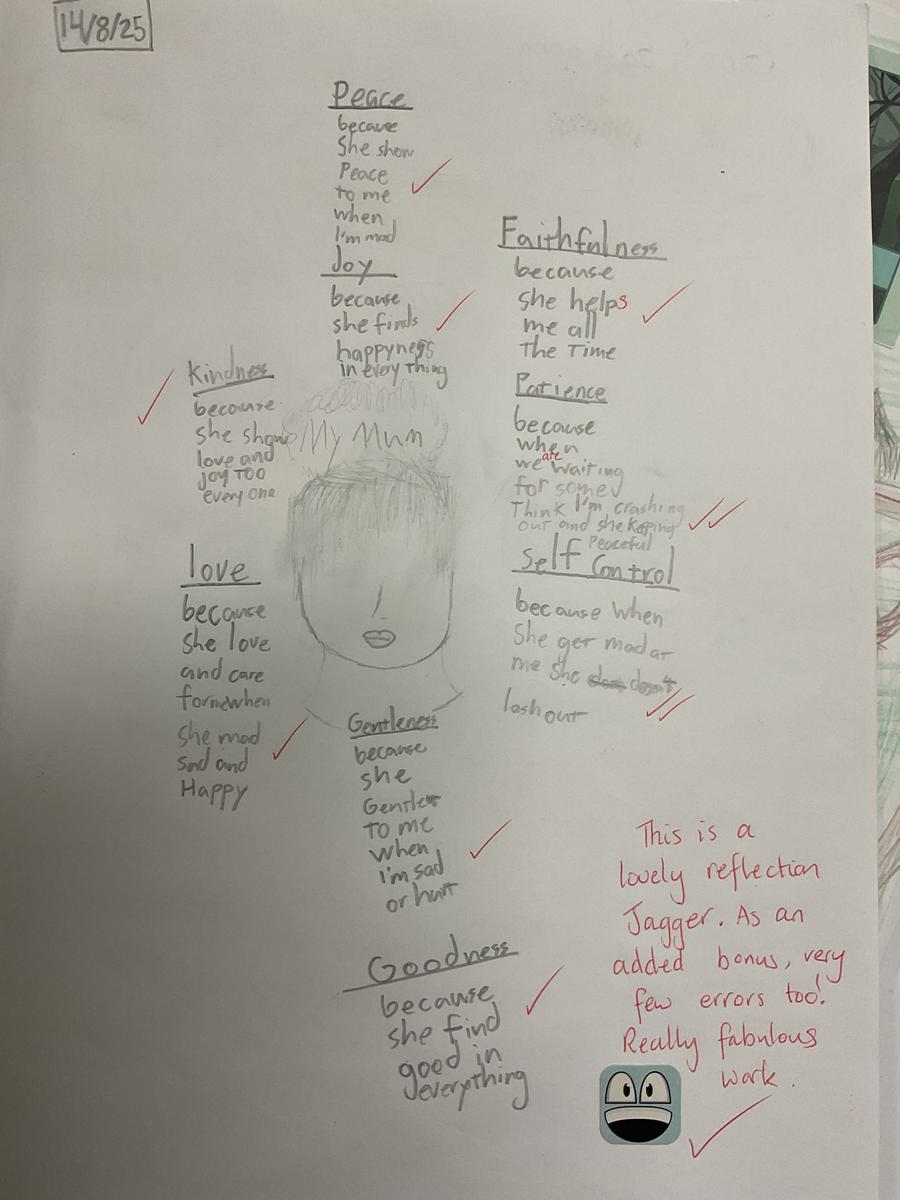 14/8/25
Peace
because
She show
Peace
to me
when
I'm mad
Joy
because
she finds
happyness
in every thing
Kindness
because
she show
love and
joy Too
every one
My Mum
love
because
she love
and care
for me when
she mad
sad and
Happy
Faithfulness
because
she helps
me all
the Time
Patience
because
when
we are waiting
for some
Think I'm crashing
out and she Keeping
Peaceful
Self Control
because when
She ger mad at
me she doesn't
lash out
Gentleness
because
she
Gentle
to me
when
I'm sad
or hurt
Goodness
because
she find
good in
everything
This is a
lovely reflection
Jagger. As an
added bonus, very
few errors too!
Really fabulous
work.